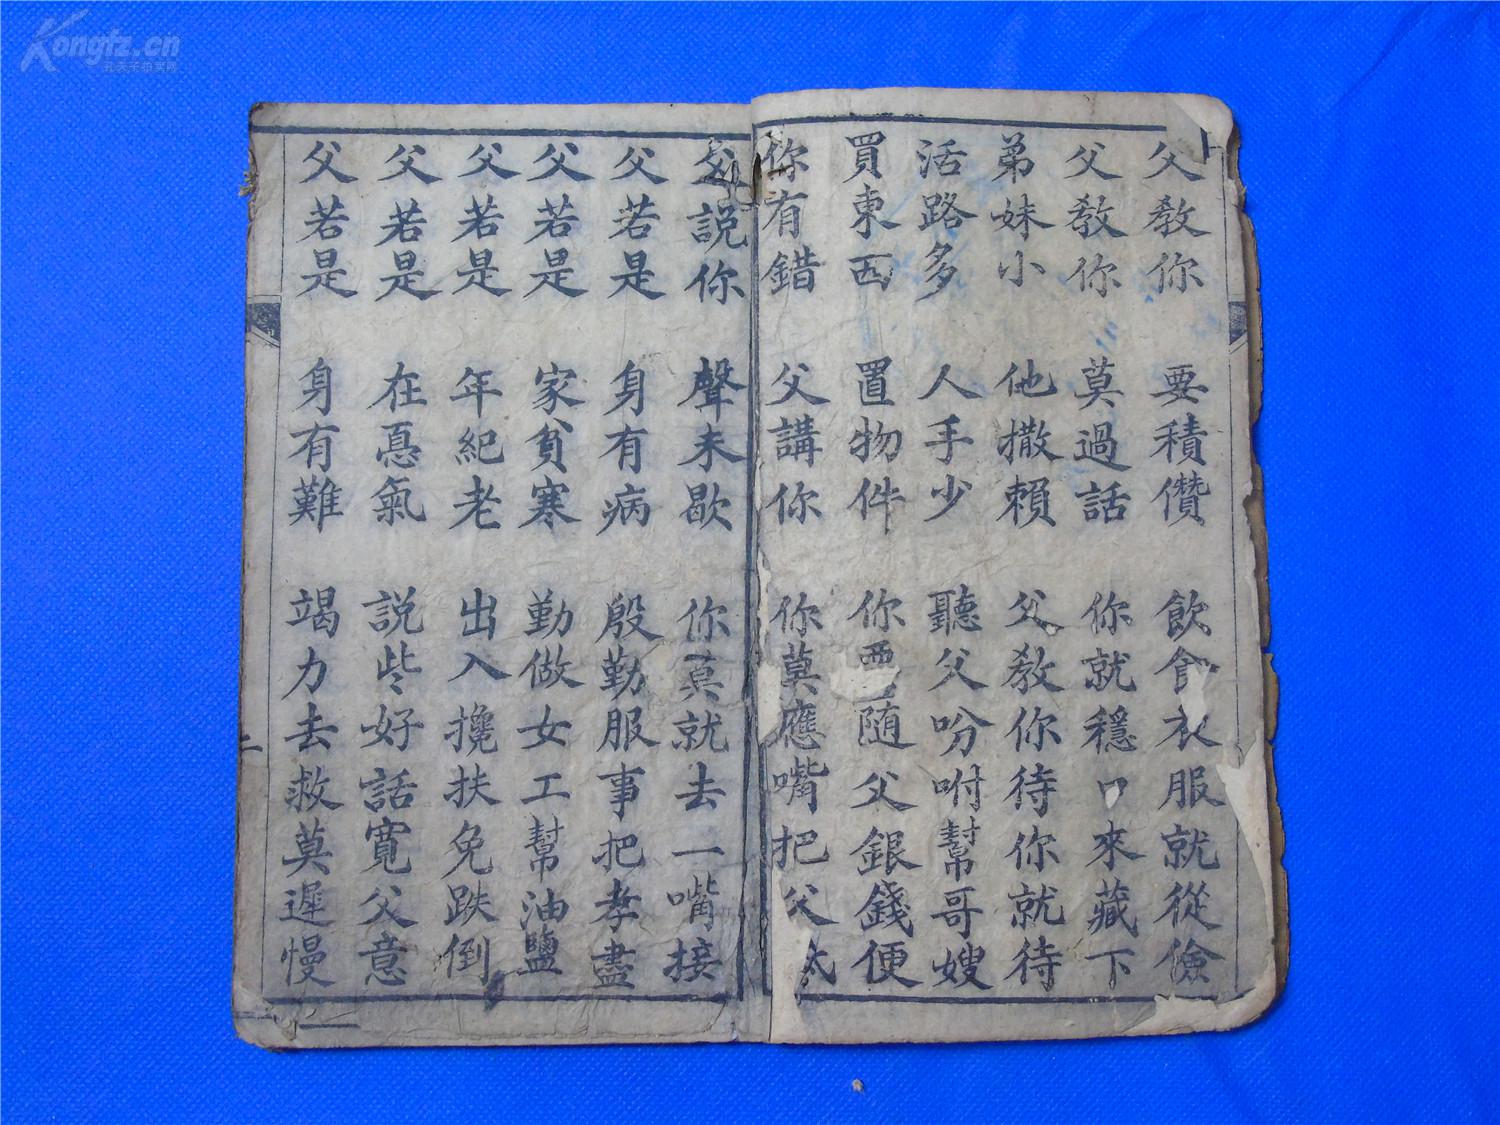 Kongfz.cn
孔夫子拍卖网
父教你 要積儹 飲食衣服就從儉
父教你 莫過話 你就穩口來藏下
弟妹小 他撒賴 父教你待你就待
活路多 人手少 聽父吩咐幫哥嫂
買東西 置物件 你要隨父銀錢便
你有錯 父講你 你莫應嘴把父
父說你 聲未歇 你莫就去一嘴接
父若是 身有病 殷勤服事把孝盡
父若是 家貧寒 勤做女工幫油鹽
父若是 年紀老 出入攙扶免跌倒
父若是 在憂氣 説些好話寬父意
父若是 身有難 竭力去救莫遲慢
二